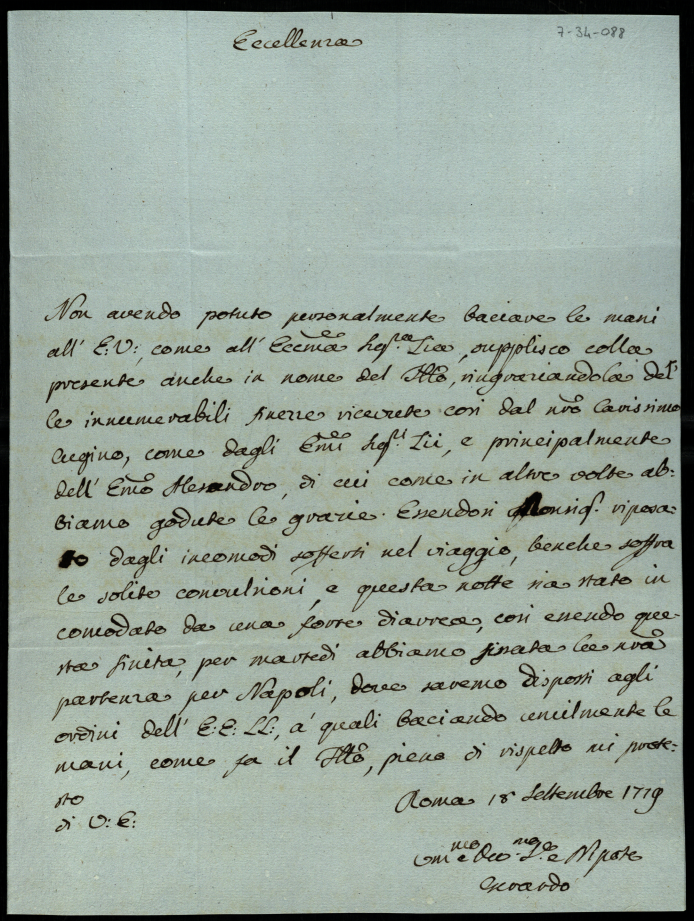 7-34-088
Eccellenza
Non avendo potuto personalmente baciare le mani
all' E: V:, come all' Eccma Sigra Zia, supplisco colla
presente anche in nome del Fllo, ringraziandola del:
le innumerabili finezze ricevute così dal nro Carissimo
Cugino, come dagli Emi Sigri Zii, e principalmente
dell' Emo Alesandro, di cui come in altre volte ab:
biamo godute le grazie. Essendosi Monsigr riposa:
to dagli incomodi sofferti nel viaggio, benche soffra
le solite convulsioni, e questa notte sia stato in
comodato da una forte diarrea, così essendo que
sta finita, per martedì abbiamo fissata la nra
partenza per Napoli, dove saremo disposti agli
ordini dell' E: E: LL:, a' quali baciando umilmente le
mani, come fa il Fllo, pieno di rispetto mi prote:
sto
di V: E:
Roma 18 Settembre 1779
Nipote